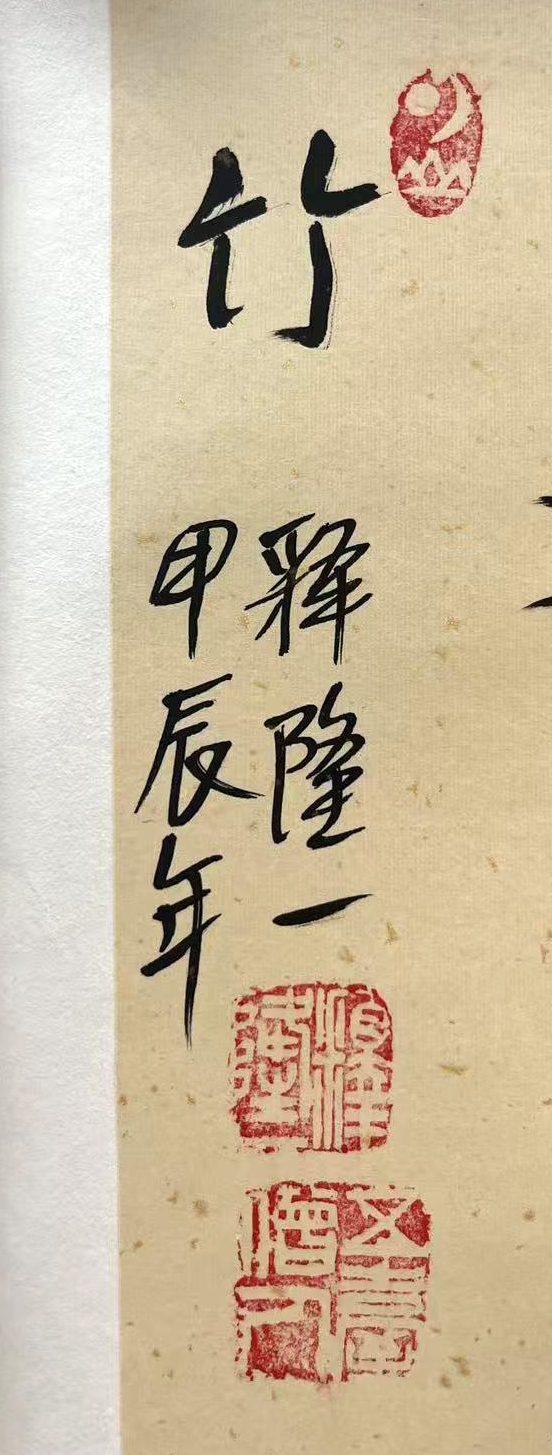 竹
释隆一
甲辰年